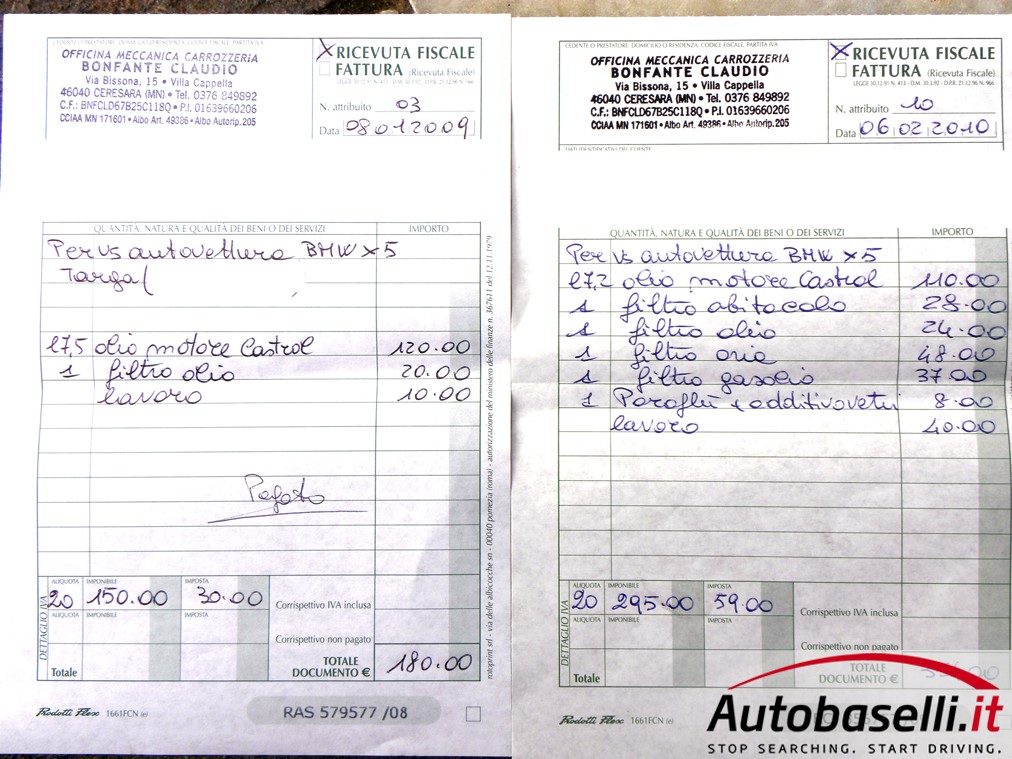 CEDENTE O PRESTATORE, DOMICILIO O RESIDENZA, CODICE FISCALE, PARTITA IVA
OFFICINA MECCANICA CARROZZERIA
BONFANTE CLAUDIO
Via Bissona, 15 • Villa Cappella
46040 CERESARA (MN) • Tel. 0376 849892
C.F.: BNFCLD67B25C118Q • P.I. 01639660206
CCIAA MN 171601 • Albo Art. 49386 • Albo Autorip. 205
X RICEVUTA FISCALE
FATTURA (Ricevuta Fiscale)
N. attribuito 03
Data 08012009
QUANTITÀ, NATURA E QUALITÀ DEI BENI O DEI SERVIZI IMPORTO
Per vs autovettura BMW x5
Targa
l7,5 olio motore Castrol 120.00
1 filtro olio 20.00
lavoro 10.00
Pagato
DETTAGLIO IVA
ALIQUOTA IMPONIBILE IMPOSTA
20 150.00 30.00
Corrispettivo IVA inclusa
ALIQUOTA IMPONIBILE IMPOSTA
Corrispettivo non pagato
Totale
TOTALE
DOCUMENTO € 180.00
Rodotti Flex 1661FCN (e)
RAS 579577 /08
rotoprint srl - via delle albicocche sn - 00040 pomezia (roma) - autorizzazione del ministero delle finanze n. 367611 del 12.11.1979
CEDENTE O PRESTATORE, DOMICILIO O RESIDENZA, CODICE FISCALE, PARTITA IVA
OFFICINA MECCANICA CARROZZERIA
BONFANTE CLAUDIO
Via Bissona, 15 • Villa Cappella
46040 CERESARA (MN) • Tel. 0376 849892
C.F.: BNFCLD67B25C118Q • P.I. 01639660206
CCIAA MN 171601 • Albo Art. 49386 • Albo Autorip. 205
X RICEVUTA FISCALE
FATTURA (Ricevuta Fiscale)
N. attribuito 10
Data 06022010
QUANTITÀ, NATURA E QUALITÀ DEI BENI O DEI SERVIZI IMPORTO
Per vs autovettura BMW x5
l7,2 olio motore Castrol 110.00
1 filtro abitacolo 28.00
1 filtro olio 24.00
1 filtro aria 48.00
1 filtro gasolio 37.00
1 Paraflù + additivo vetri 8.00
lavoro 40.00
DETTAGLIO IVA
ALIQUOTA IMPONIBILE IMPOSTA
20 295.00 59.00
Corrispettivo IVA inclusa
ALIQUOTA IMPONIBILE IMPOSTA
Corrispettivo non pagato
Totale
TOTALE
DOCUMENTO €
Rodotti Flex 1661FCN (e)
Autobaselli.it
STOP SEARCHING. START DRIVING.